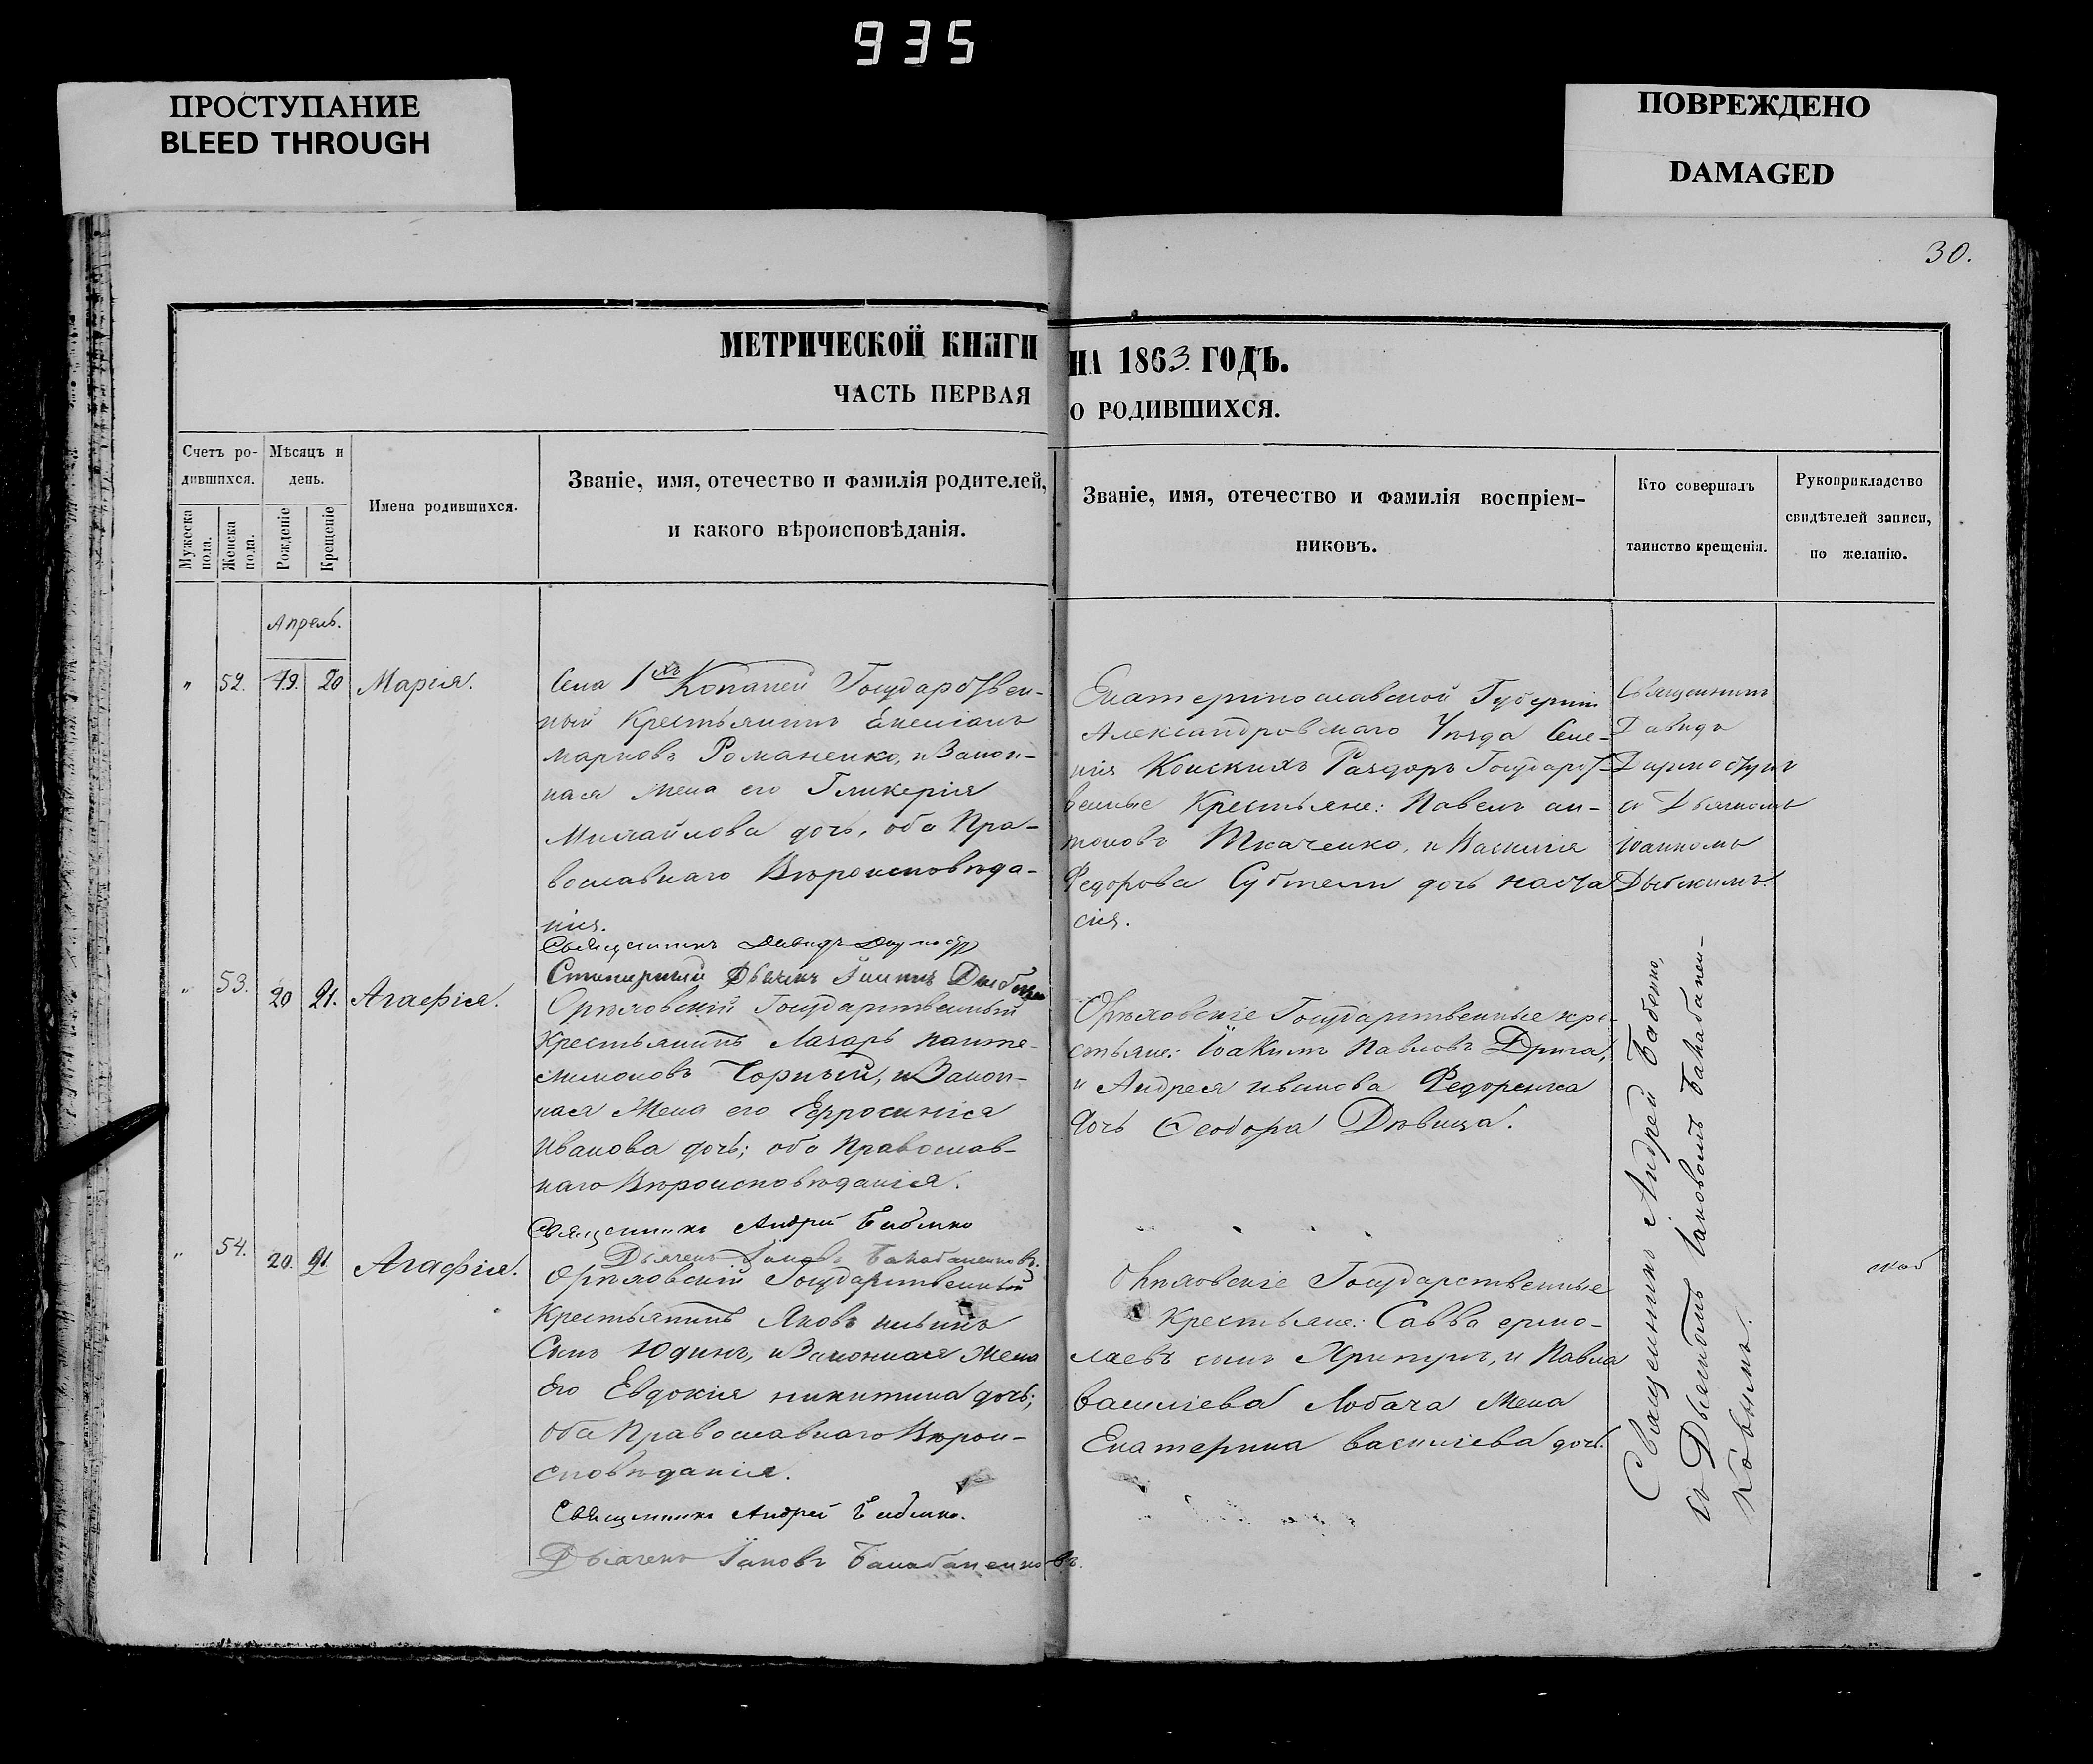 935
ПРОСТУПАНИЕ
BLEED THROUGH
ПОВРЕЖДЕНО
DAMAGED
30.
МЕТРИЧЕСКОЙ КНИГИ НА 1863 ГОДЪ.
ЧАСТЬ ПЕРВАЯ О РОДИВШИХСЯ.
Счетъ ро-
дившихся.
Мужеска
пола.
Женска
пола.
Мѣсяцъ и
день.
Рожденіе
Крещеніе
Имена родившихся.
Званіе, имя, отечество и фамилія родителей,
и какого вѣроисповѣданія.
Званіе, имя, отечество и фамилія воспріем-
никовъ.
Кто совершалъ
таинство крещенія.
Рукоприкладство
свидѣтелей записи,
по желанію.
Апрель.
" 52. 19. 20 Марія.
Села 1хъ Копаней Государствен-
ный Крестьянинъ
марковъ Романенко, и Закон-
ная жена его Гликерія
Михайлова дочь, оба Пра-
вославнаго Вѣроисповѣда-
нія.
Священникъ Давидъ
Дьячекъ
Екатеринославской Губерніи
Александровскаго Уѣзда Селе-
нія Конскихъ Раздоръ Государст-
венные Крестьяне: Павелъ ан-
тоновъ Ткаченко, и
Федорова дочь наста
сія.
Священникъ
Давидъ
съ Дьячкомъ
Іоанномъ
" 53. 20 21. Агафія.
Орѣховскій Государственный
Крестьянинъ Лазарь панте-
лимоновъ Чорный, и Закон-
ная жена его Ефросинія
Иванова дочь; оба Православ-
наго Вѣроисповѣданія.
Священникъ Андрей Бабенко
Дьячекъ Іаковъ Балабаненковъ.
Орѣховскіе Государственные кре-
стьяне: Іоакимъ Павловъ Дрига,
и Андрея иванова Федоренка
дочь Феодора Дѣвица.
" 54. 20. 21 Агафія.
Орѣховскій Государственный
Крестьянинъ Яковъ ильинъ
Сынъ Юдинъ, и Законная жена
его Евдокія никитина дочь;
оба Православнаго Вѣрои-
сповѣданія.
Священникъ Андрей Бабенко.
Дьячекъ Іаковъ Балабаненковъ.
Орѣховскіе Государственные
Крестьяне: Савва ермо-
лаевъ сынъ Хрипунъ, и Павла
василіева Лобача жена
Екатерина василіева дочь.
Священникъ Андрей Бабенко,
съ Дьячкомъ Іаковомъ Балабанен-
ковымъ.